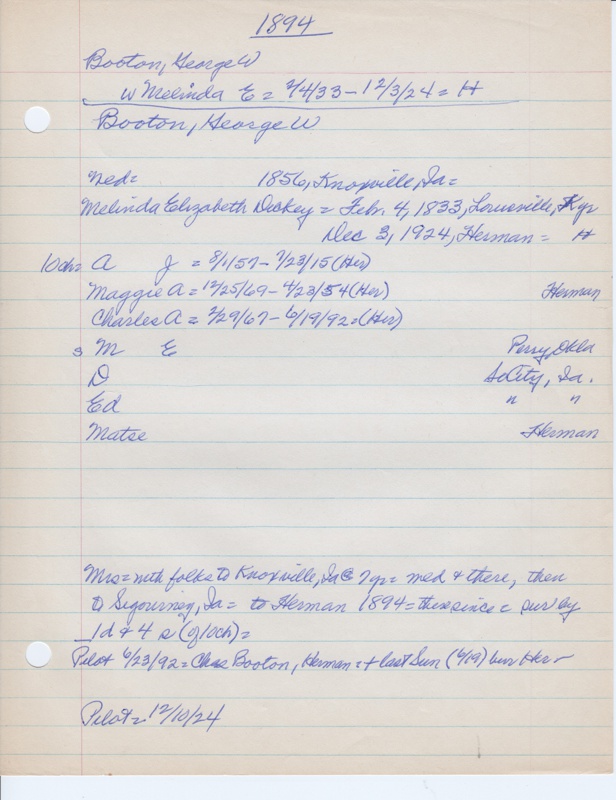 1894
Booton, George W
w Melinda E = 2/4/33 - 12/3/24 = H
Booton, George W
Med = 1856, Knoxville, Ia =
Melinda Elizabeth Dickey = Feb. 4, 1833, Louisville, Ky
Dec 3, 1924, Herman = H
10 ch = A J = 8/1/57 - 7/23/15 (Her)
Maggie A = 12/25/69 - 4/23/54 (Her) Herman
Charles A = 2/29/67 - 6/19/92 = (Her)
s M E Perry, Okla
D So City, Ia.
Ed " "
Matse Herman
Mrs = with folks to Knoxville, Ia @ 7 yr = med + there, then
to Sigourney, Ia = to Herman 1894 = there since = surv by
1 d + 4 s (of 10 ch) =
Pilot 6/23/92 = Chas Booton, Herman = + last Sun (6/19) bur Her -
Pilot = 12/10/24